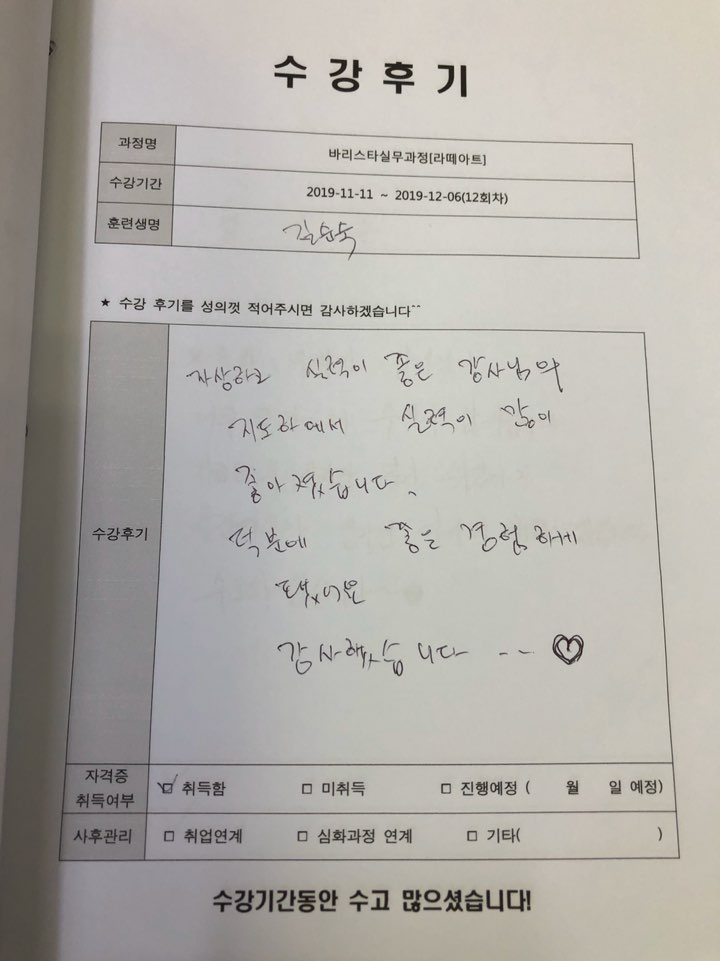 수강후기
과정명 바리스타실무과정[라떼아트]
수강기간 2019-11-11 ~ 2019-12-06(12회차)
훈련생명 김순옥
★ 수강 후기를 성의껏 적어주시면 감사하겠습니다^^
수강후기
자상하고 실력이 좋은 강사님의
지도하에서 실력이 많이
좋아졌습니다.
덕분에 좋은 경험하게
됐어요
감사했습니다 -- ♡
자격증 취득여부 ☑ 취득함 □ 미취득 □ 진행예정 ( 월 일 예정)
사후관리 □ 취업연계 □ 심화과정 연계 □ 기타( )
수강기간동안 수고 많으셨습니다!